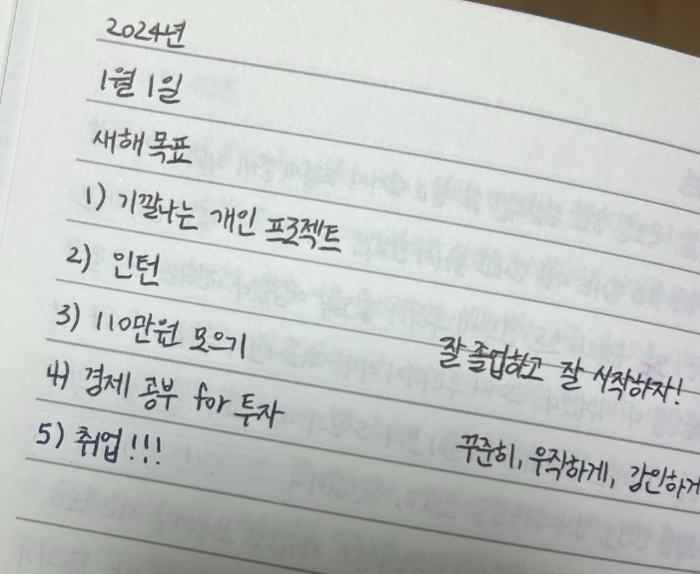 2024년
1월 1일
새해 목표
1) 기깔나는 개인 프로젝트
2) 인턴
3) 110만원 모으기
4) 경제 공부 for 투자
5) 취업!!!
잘 졸업하고 잘 시작하자!
꾸준히, 우직하게, 강인하게